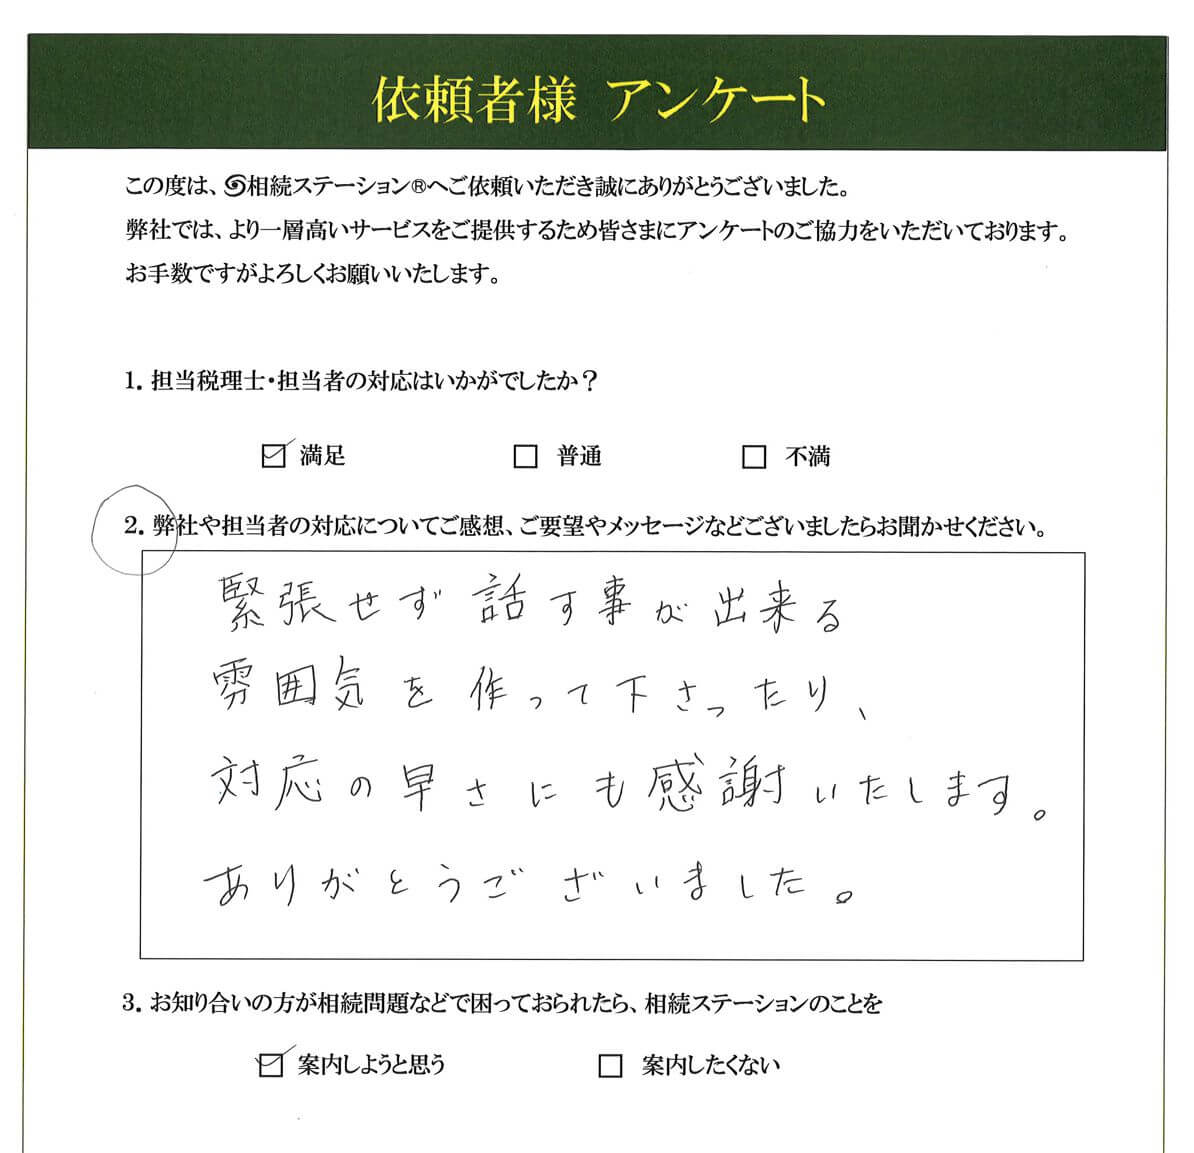 依頼者様 アンケート
この度は、相続ステーション®へご依頼いただき誠にありがとうございました。
弊社では、より一層高いサービスをご提供するため皆さまにアンケートのご協力をいただいております。
お手数ですがよろしくお願いいたします。
1. 担当税理士・担当者の対応はいかがでしたか？
☑ 満足 □ 普通 □ 不満
2. 弊社や担当者の対応についてご感想、ご要望やメッセージなどございましたらお聞かせください。
緊張せず話す事が出来る
雰囲気を作って下さったり、
対応の早さにも感謝いたします。
ありがとうございました。
3. お知り合いの方が相続問題などで困っておられたら、相続ステーションのことを
☑ 案内しようと思う □ 案内したくない